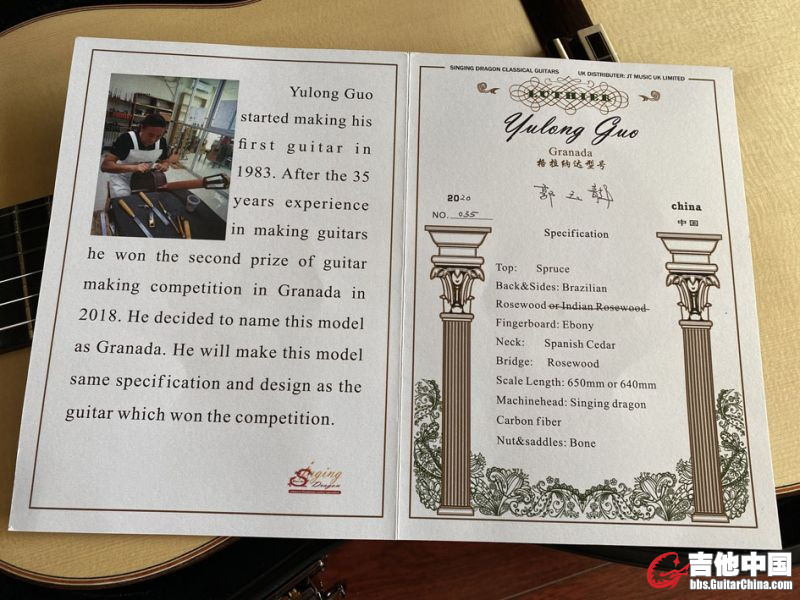 Yulong Guo
started making his
first guitar in
1983. After the 35
years experience
in making guitars
he won the second prize of guitar
making competition in Granada in
2018. He decided to name this model
as Granada. He will make this model
same specification and design as the
guitar which won the competition.
Singing
Dragon
SINGING DRAGON CLASSICAL GUITARS UK DISTRIBUTER: JT MUSIC UK LIMITED
LUTHIER
Yulong Guo
Granada
格拉纳达型号
2020
NO. 035
china
中国
Specification
Top: Spruce
Back&Sides: Brazilian
Rosewood or Indian Rosewood
Fingerboard: Ebony
Neck: Spanish Cedar
Bridge: Rosewood
Scale Length: 650mm or 640mm
Machinehead: Singing dragon
Carbon fiber
Nut&saddles: Bone
吉他中国
bbs.GuitarChina.com